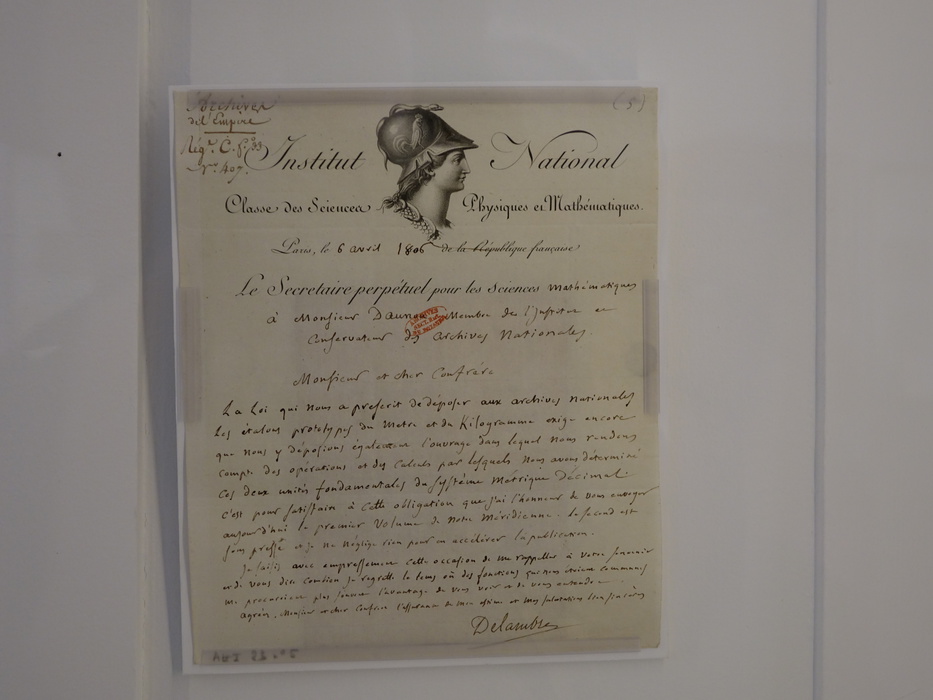 Archives
de l'Empire
(5)
Institut National
Classe des Sciences Physiques et Mathématiques.
Paris, le 6 avril 1806 de la République française
Le Secretaire perpétuel pour les Sciences mathématiques
à Monsieur Daunou Membre de l'Institut et
Conservateur des Archives Nationales.
Monsieur et cher Confrère
La Loi qui nous a prescrit de déposer aux archives nationales
les étalons prototypes du Metre et du Kilogramme exige encore
que nous y déposions également l'ouvrage dans lequel nous rendons
compte des opérations et des calculs par lesquels nous avons déterminé
ces deux unités fondamentales du Système Métrique Décimal.
C'est pour satisfaire à cette obligation que j'ai l'honneur de vous envoyer
aujourd'hui le premier Volume de notre Méridienne. Le second est
sous presse et je ne néglige rien pour en accélérer la publication.
Je saisis avec empressement cette occasion de me rappeller à votre souvenir
et de vous dire combien je regrette le tems où des fonctions qui nous étoient communes
me procuroient plus souvent l'avantage de vous voir et de vous entendre.
Agréez, Monsieur et cher Confrere l'assurance de mon estime et mes salutations bien sincères
Delambre